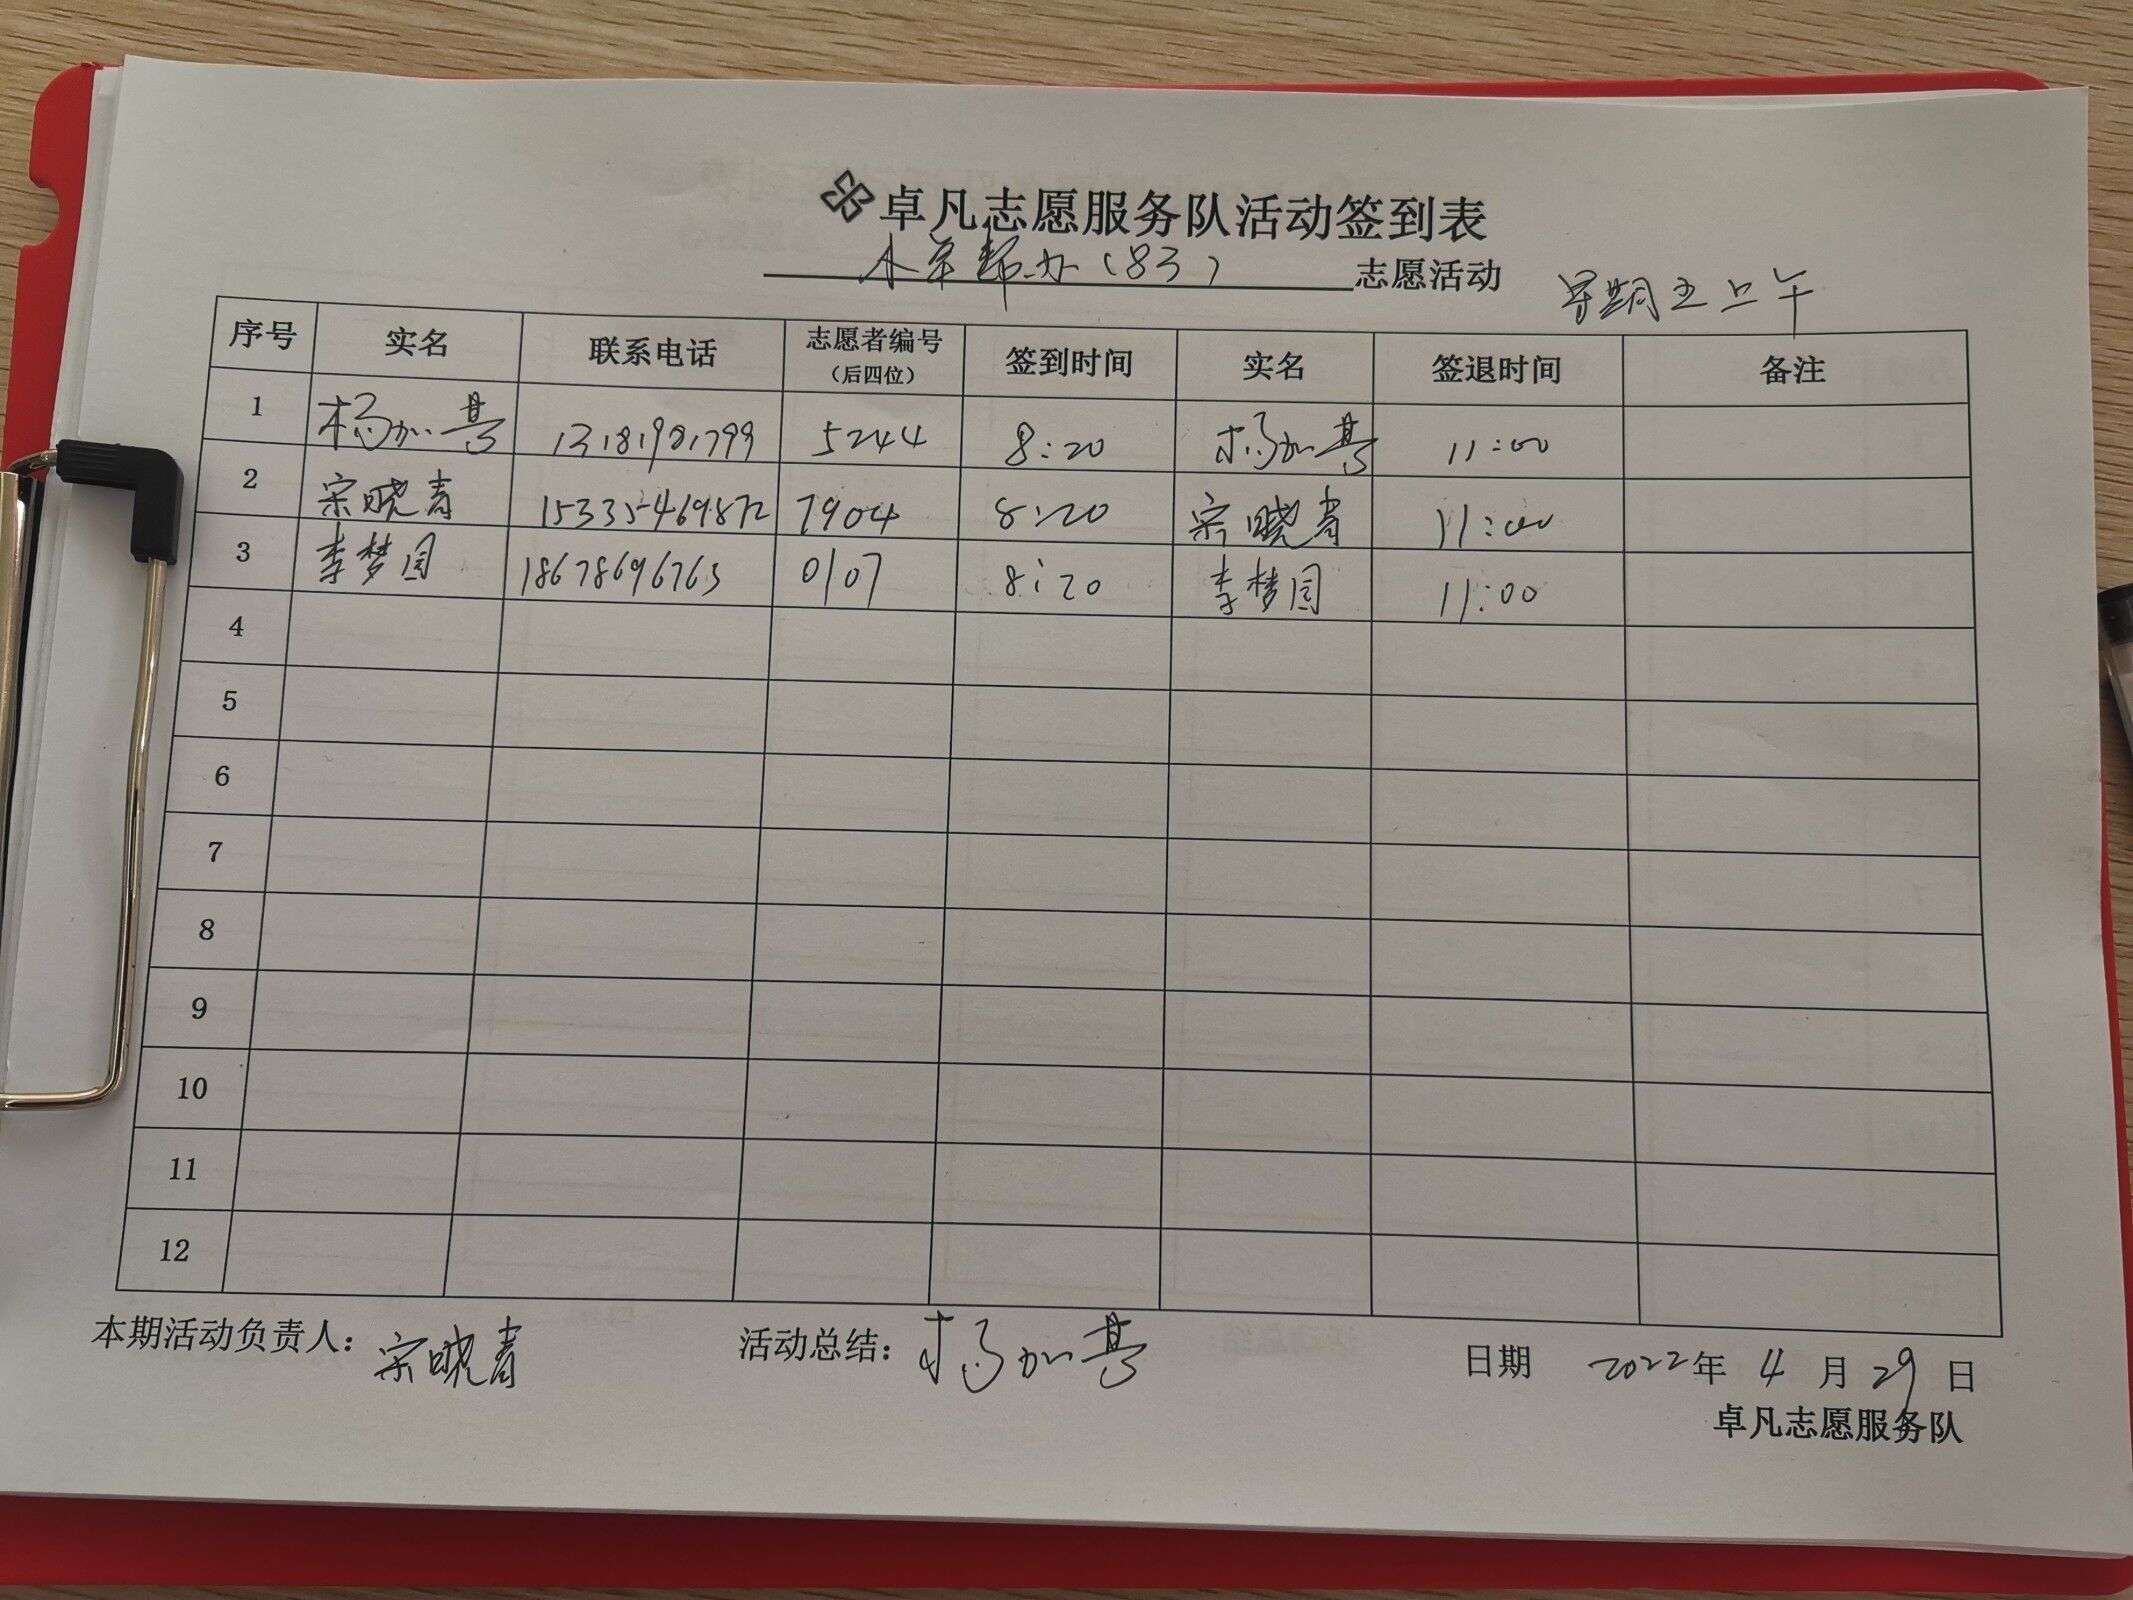 卓凡志愿服务队活动签到表
(83) 志愿活动 星期五上午
序号 实名 联系电话 志愿者编号（后四位） 签到时间 实名 签退时间 备注
1 杨加 13181981799 5244 8:20 杨加 11:00
2 宋晓青 15335469872 7904 8:20 宋晓青 11:00
3 李梦园 18678696763 0107 8:20 李梦园 11:00
4
5
6
7
8
9
10
11
12
本期活动负责人：宋晓青 活动总结：杨加 日期 2022年 4 月 29 日
卓凡志愿服务队